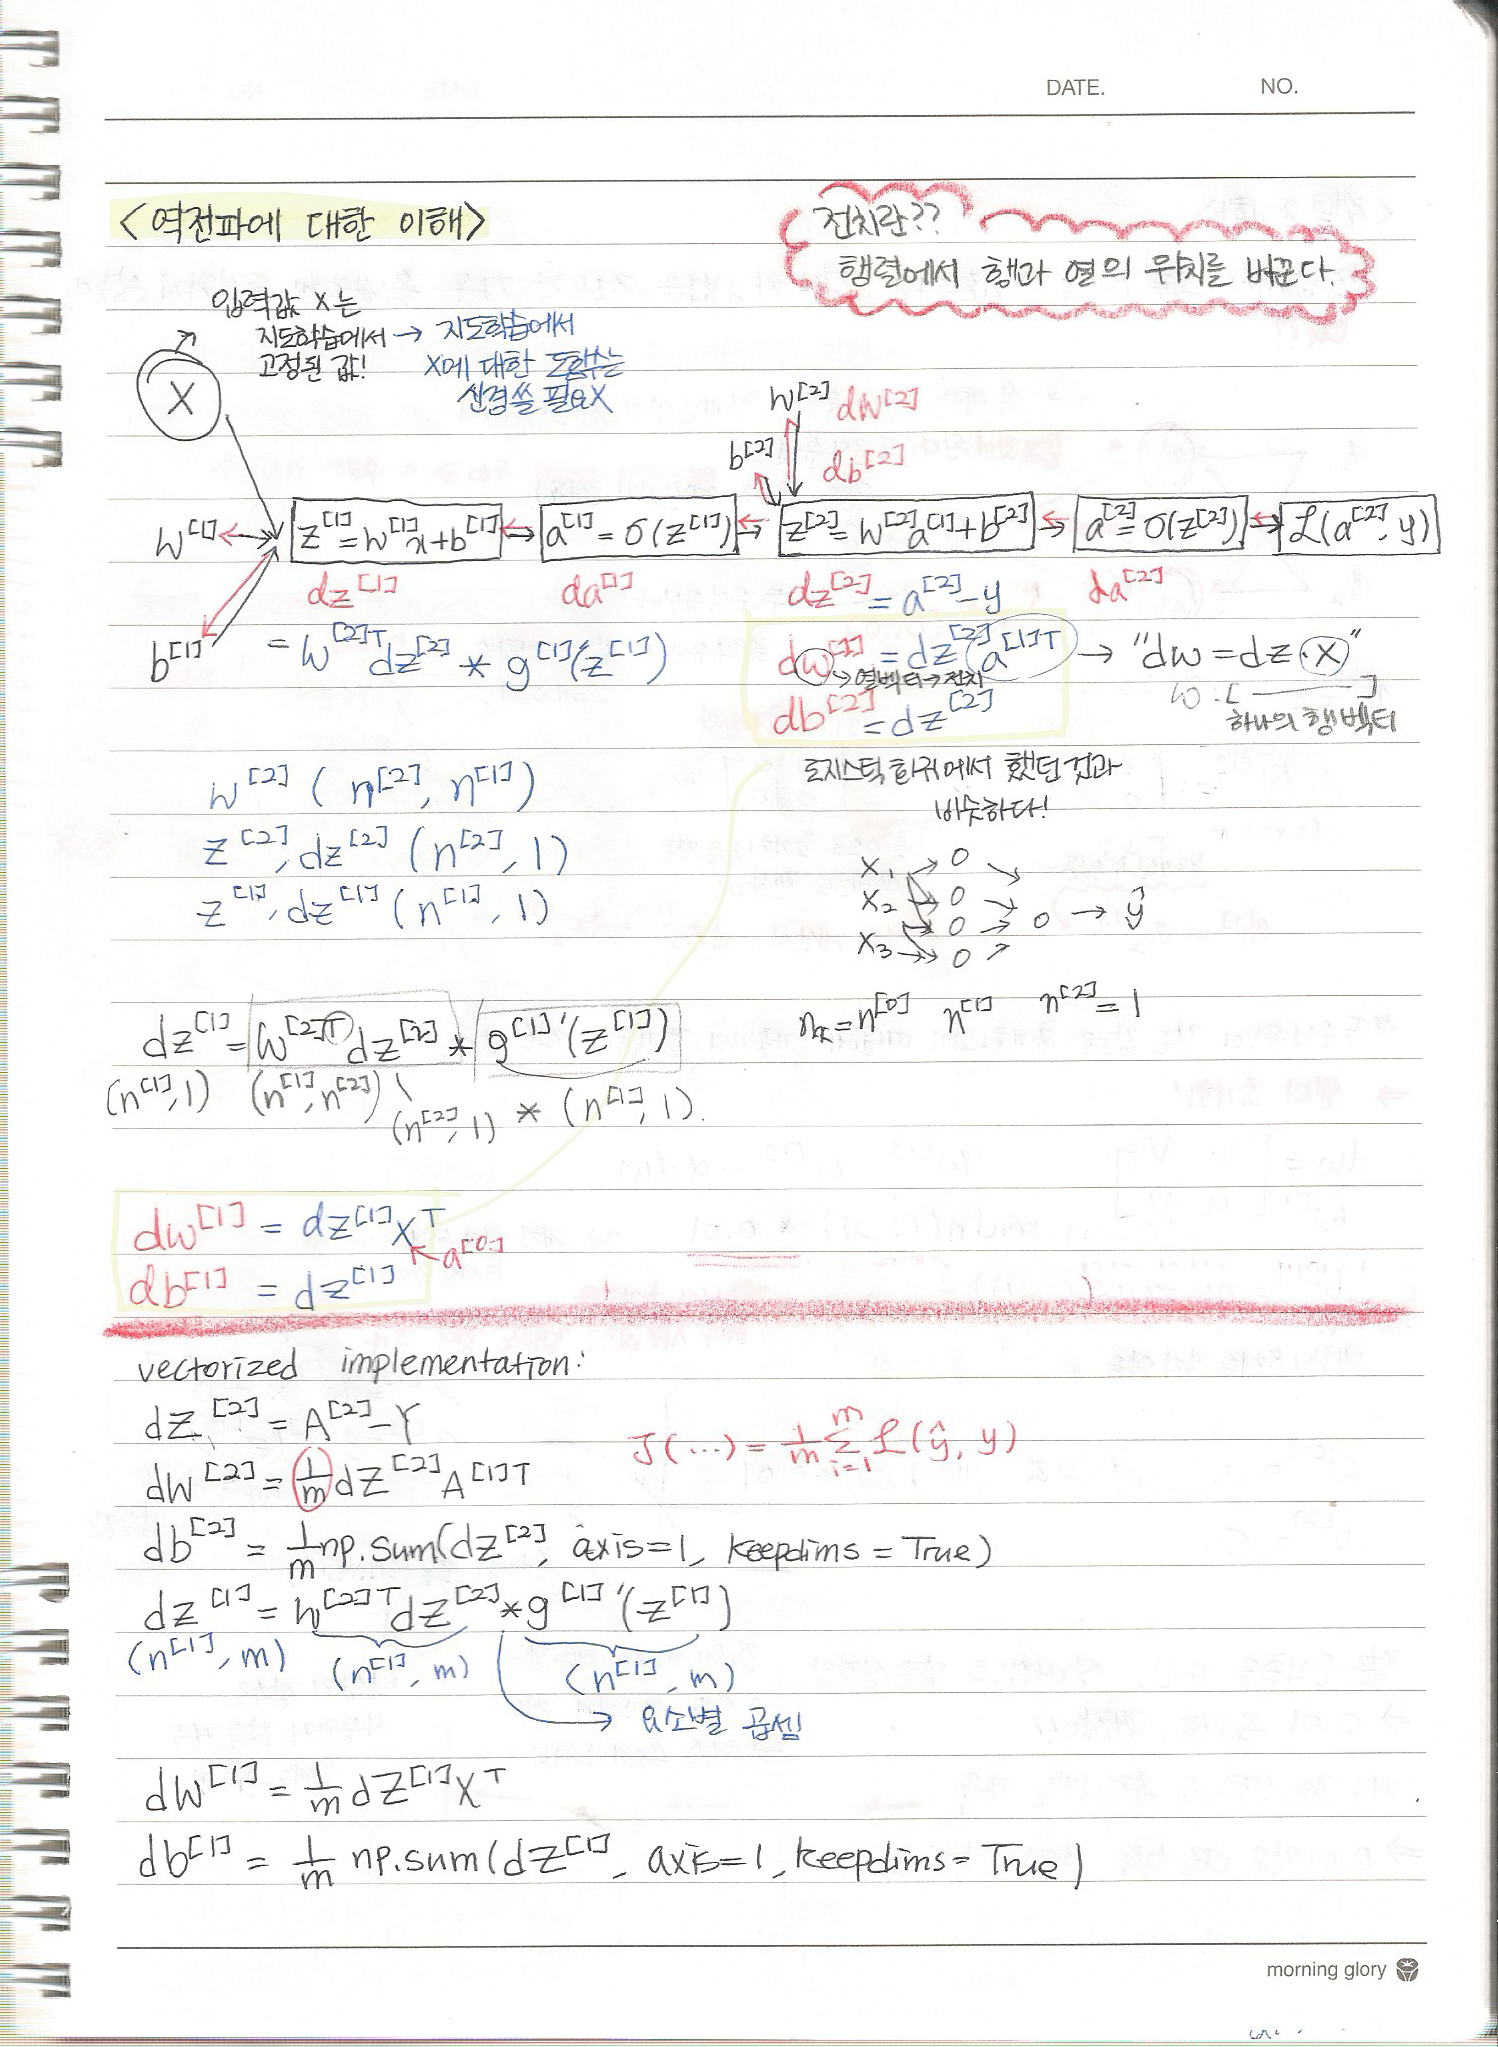 DATE. NO.
<역전파에 대한 이해>
전치란??
행렬에서 행과 열의 위치를 바꾼다.
입력값 X는
지도학습에서 → 지도학습에서
고정된 값! X에 대한 도함수는
신경쓸 필요X
X
W[2] dW[2]
b[2] db[2]
W[1] z[1]=W[1]x+b[1] a[1]=σ(z[1]) z[2]=W[2]a[1]+b[2] a[2]=σ(z[2]) L(a[2], y)
dz[1] da[1] dz[2]=a[2]-y da[2]
b[1] = W[2]T dz[2] * g[1]'(z[1]) dW[2] = dz[2] a[1]T → "dw = dz·x"
→ 열벡터→전치 W:[ ― ]
하나의 행벡터
db[2] = dz[2]
로지스틱 회귀에서 했던 것과
비슷하다!
W[2] (n[2], n[1])
z[2], dz[2] (n[2], 1)
z[1], dz[1] (n[1], 1)
x1 → 0
x2 → 0
0 → 0 → ŷ
x3 → 0
nx=n[0] n[1] n[2]=1
dz[1]=W[2]T dz[2] * g[1]'(z[1])
(n[1],1) (n[1],n[2]) (n[2],1) * (n[1],1).
dW[1] = dz[1]XT
a[0]
db[1] = dz[1]
vectorized implementation:
dZ[2] = A[2]-Y
J(...) = 1/m Σ i=1 m L(ŷ, y)
dW[2] = 1/m dZ[2]A[1]T
db[2] = 1/m np.sum(dZ[2], axis=1, keepdims=True)
dZ[1] = W[2]T dZ[2] * g[1]'(Z[1])
(n[1], m) (n[1], m) (n[1], m)
→ 요소별 곱셈
dW[1] = 1/m dZ[1]XT
db[1] = 1/m np.sum(dZ[1], axis=1, keepdims=True)
morning glory